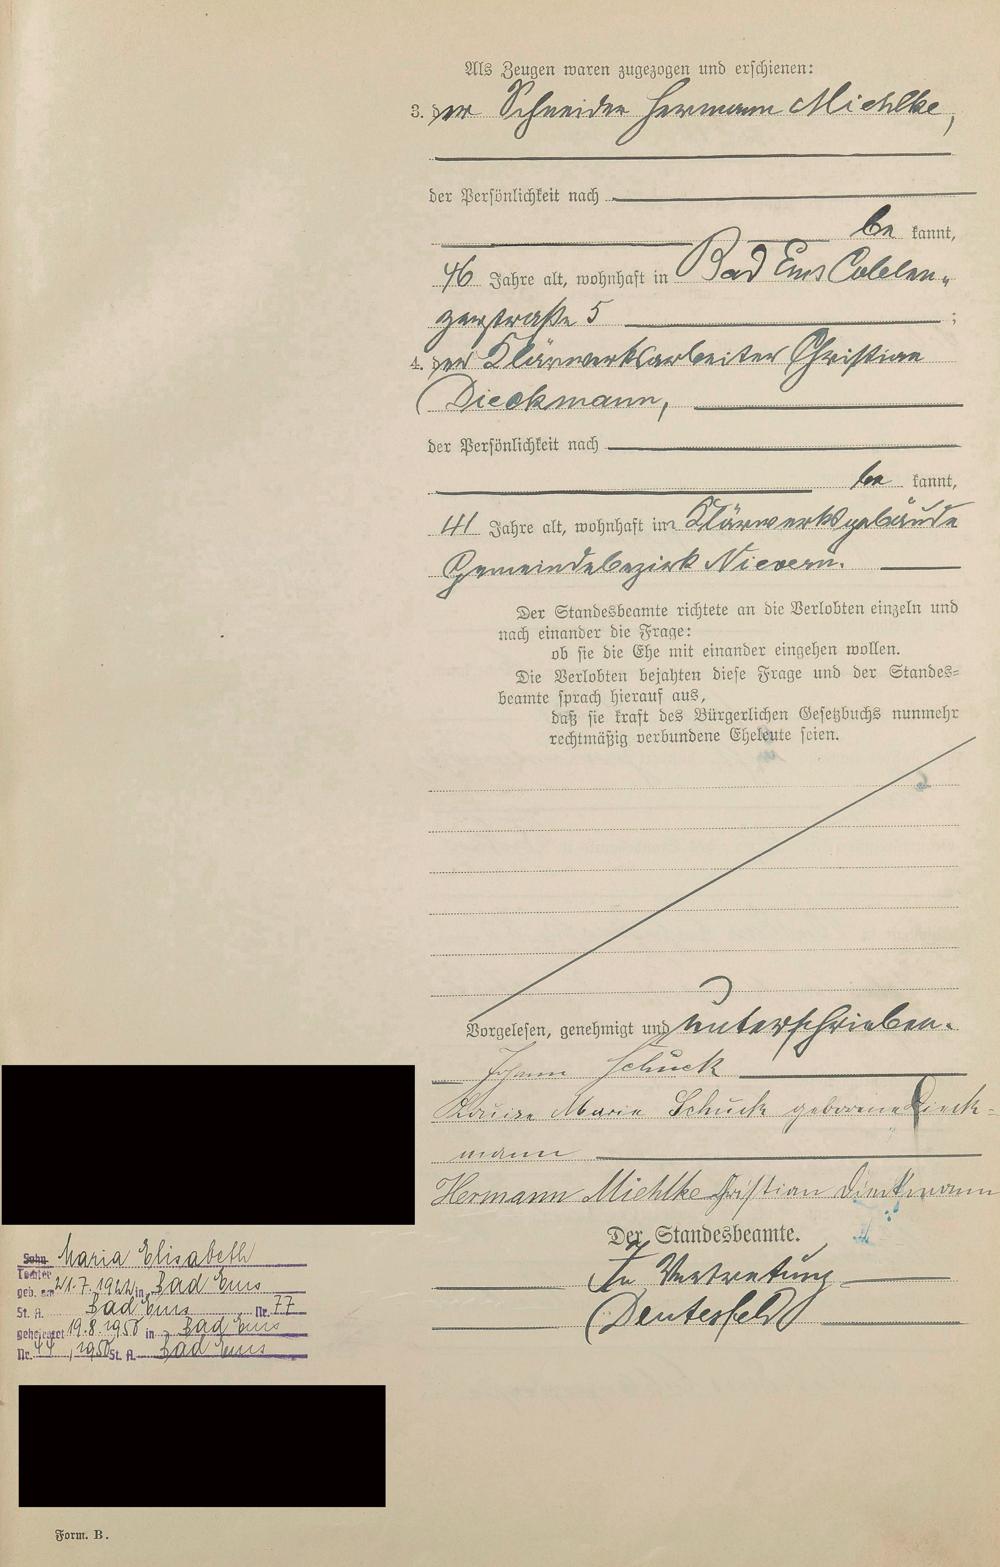 Als Zeugen waren zugezogen und erschienen:
3. der Schneider Hermann Miehlke,
der Persönlichkeit nach
be kannt,
46 Jahre alt, wohnhaft in Bad Ems Coblen„
zerstraße 5 ;
4. der Klärwerksarbeiter Christian
Dieckmann,
der Persönlichkeit nach
be kannt,
41 Jahre alt, wohnhaft im Klärwerksgebäude
Gemeindebezirk Nievern.
Der Standesbeamte richtete an die Verlobten einzeln und
nach einander die Frage:
ob sie die Ehe mit einander eingehen wollen.
Die Verlobten bejahten diese Frage und der Standes=
beamte sprach hierauf aus,
daß sie kraft des Bürgerlichen Gesetzbuchs nunmehr
rechtmäßig verbundene Eheleute seien.
Vorgelesen, genehmigt und unterschrieben.
Johann Schuck
Louise Maria Schuck geborene Dieck-
mann
Hermann Miehlke Christian Dieckmann
Der Standesbeamte.
In Vertretung
Deutesfeld
Sohn Maria Elisabeth
Tochter
geb. am 21.7.1922 in Bad Ems
St. A. Bad Ems Nr. 77
geheiratet 19.8.1950 in Bad Ems
Nr. 44, 1950 St. A. Bad Ems
Form. B.